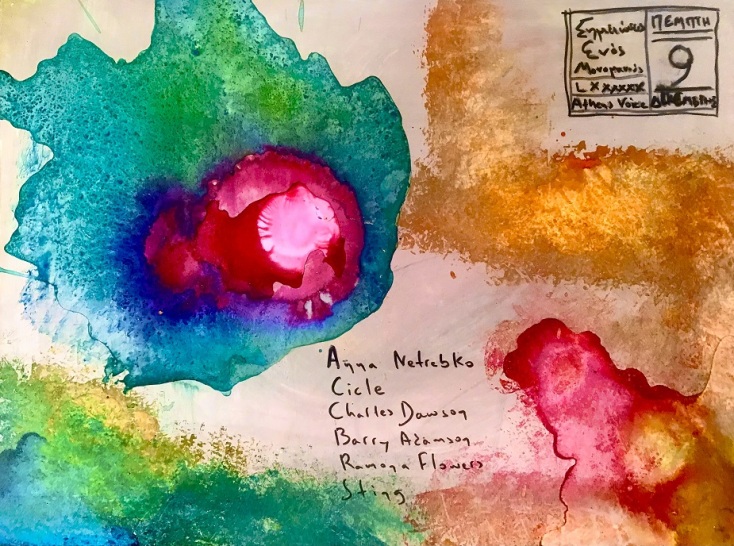 Σημειώσεις
Ενός
Μονομανούς
LXXXXXX
Athens Voice
ΠΕΜΠΤΗ
9
ΔΕΚΕΜΒΡΗΣ
Anna Netrebko
Cicle
Charles Dawson
Barry Adamson
Ramona Flowers
Sting